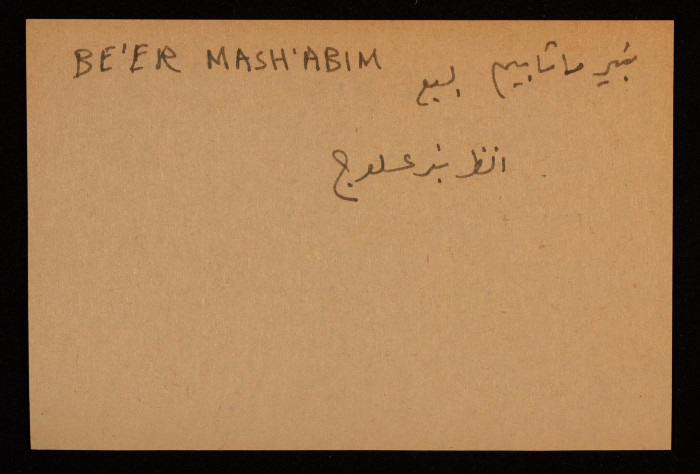 BE'ER MASH'ABIM بئير ماشابيم السبع
انظر بئر عسلوج